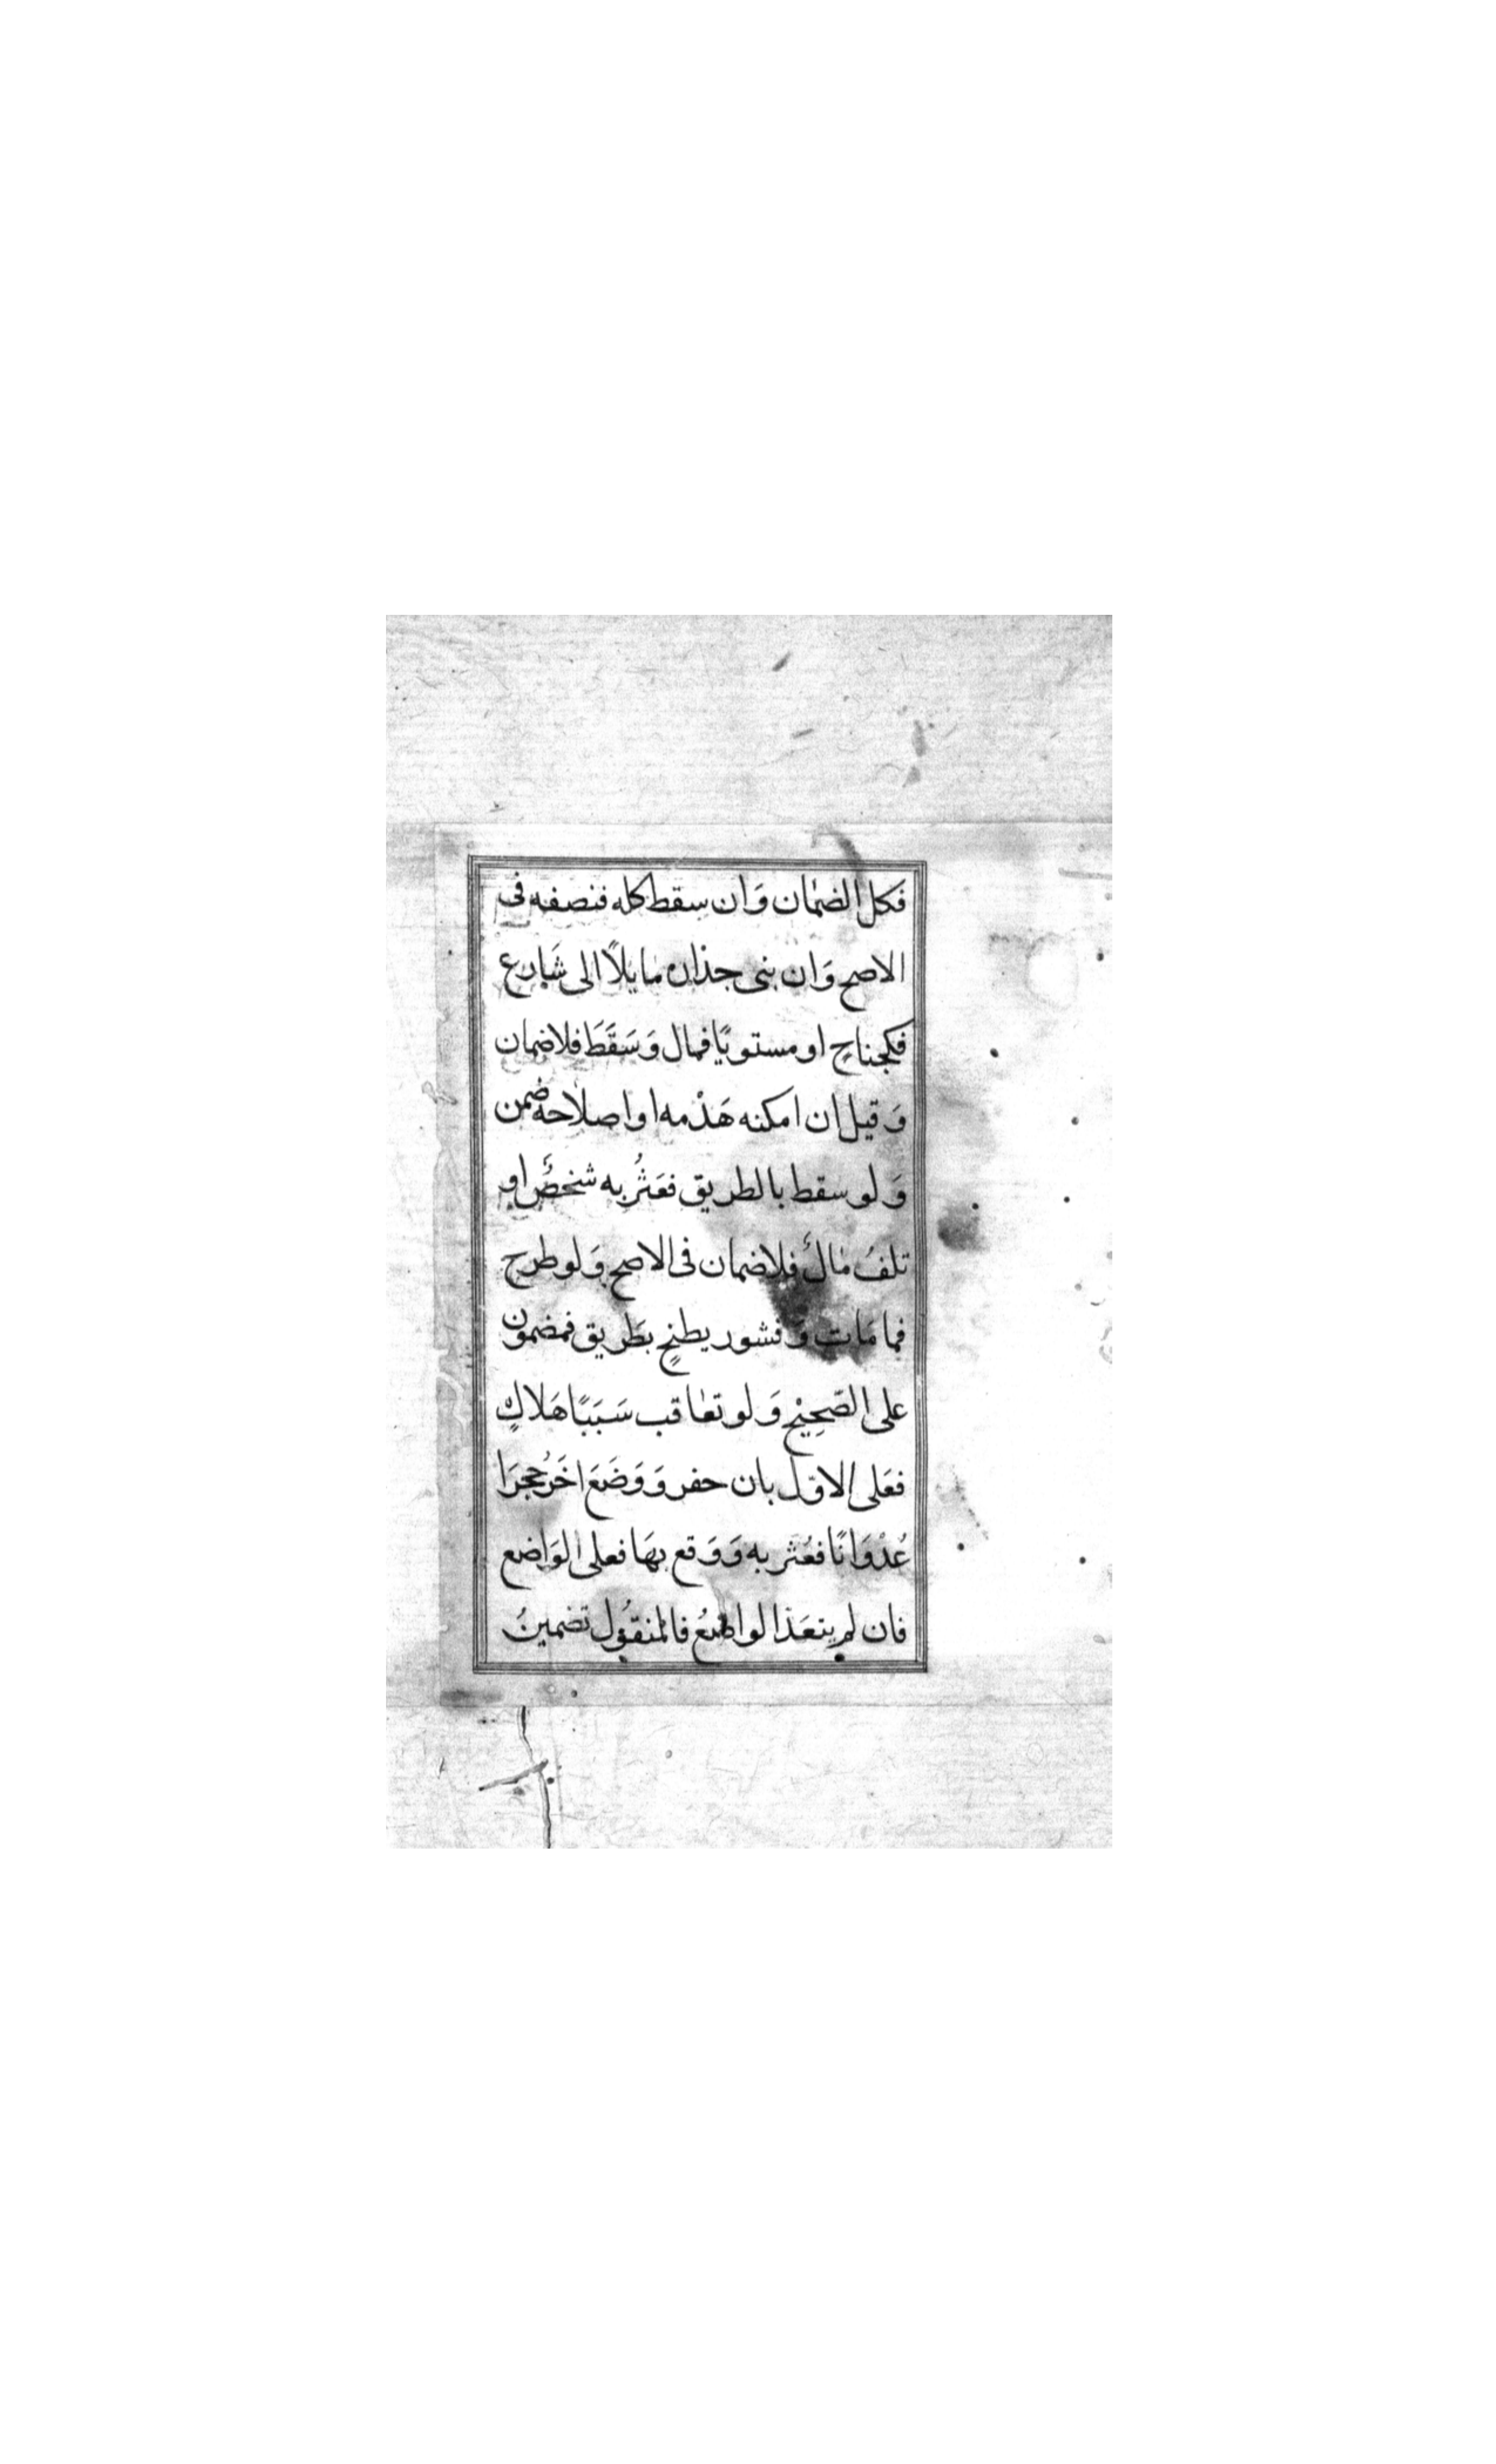 فكل الضمان وَان سقط كله فنصفه فى
الاصح وَان بنى جذاره مايلاً الى شَارع
فكجناحٍ او مستويًا فمال وَسَقَطَ فلا ضمان
وَقيل ان امكنه هَدْمه او اصلاحه ضمن
وَلو سقط بالطريق فعَثُر به شخصٌ او
تلفُ مالٌ فلا ضمان فى الاصح وَلو طرح
قمامَات وَقشور بطيخٍ بطَريق فمضمون
على الصّحِيْح وَلو تعاقب سَبَبًا هَلاكٍ
فعَلى الاوّل بان حفر وَوَضَعَ اخَرُ حجرَا
عُدْوَانًا فعُثر به وَوَقع بهَا فعلى الوَاضع
فان لم يتعَدّ الواضعُ فالمنقُول تضمينُ